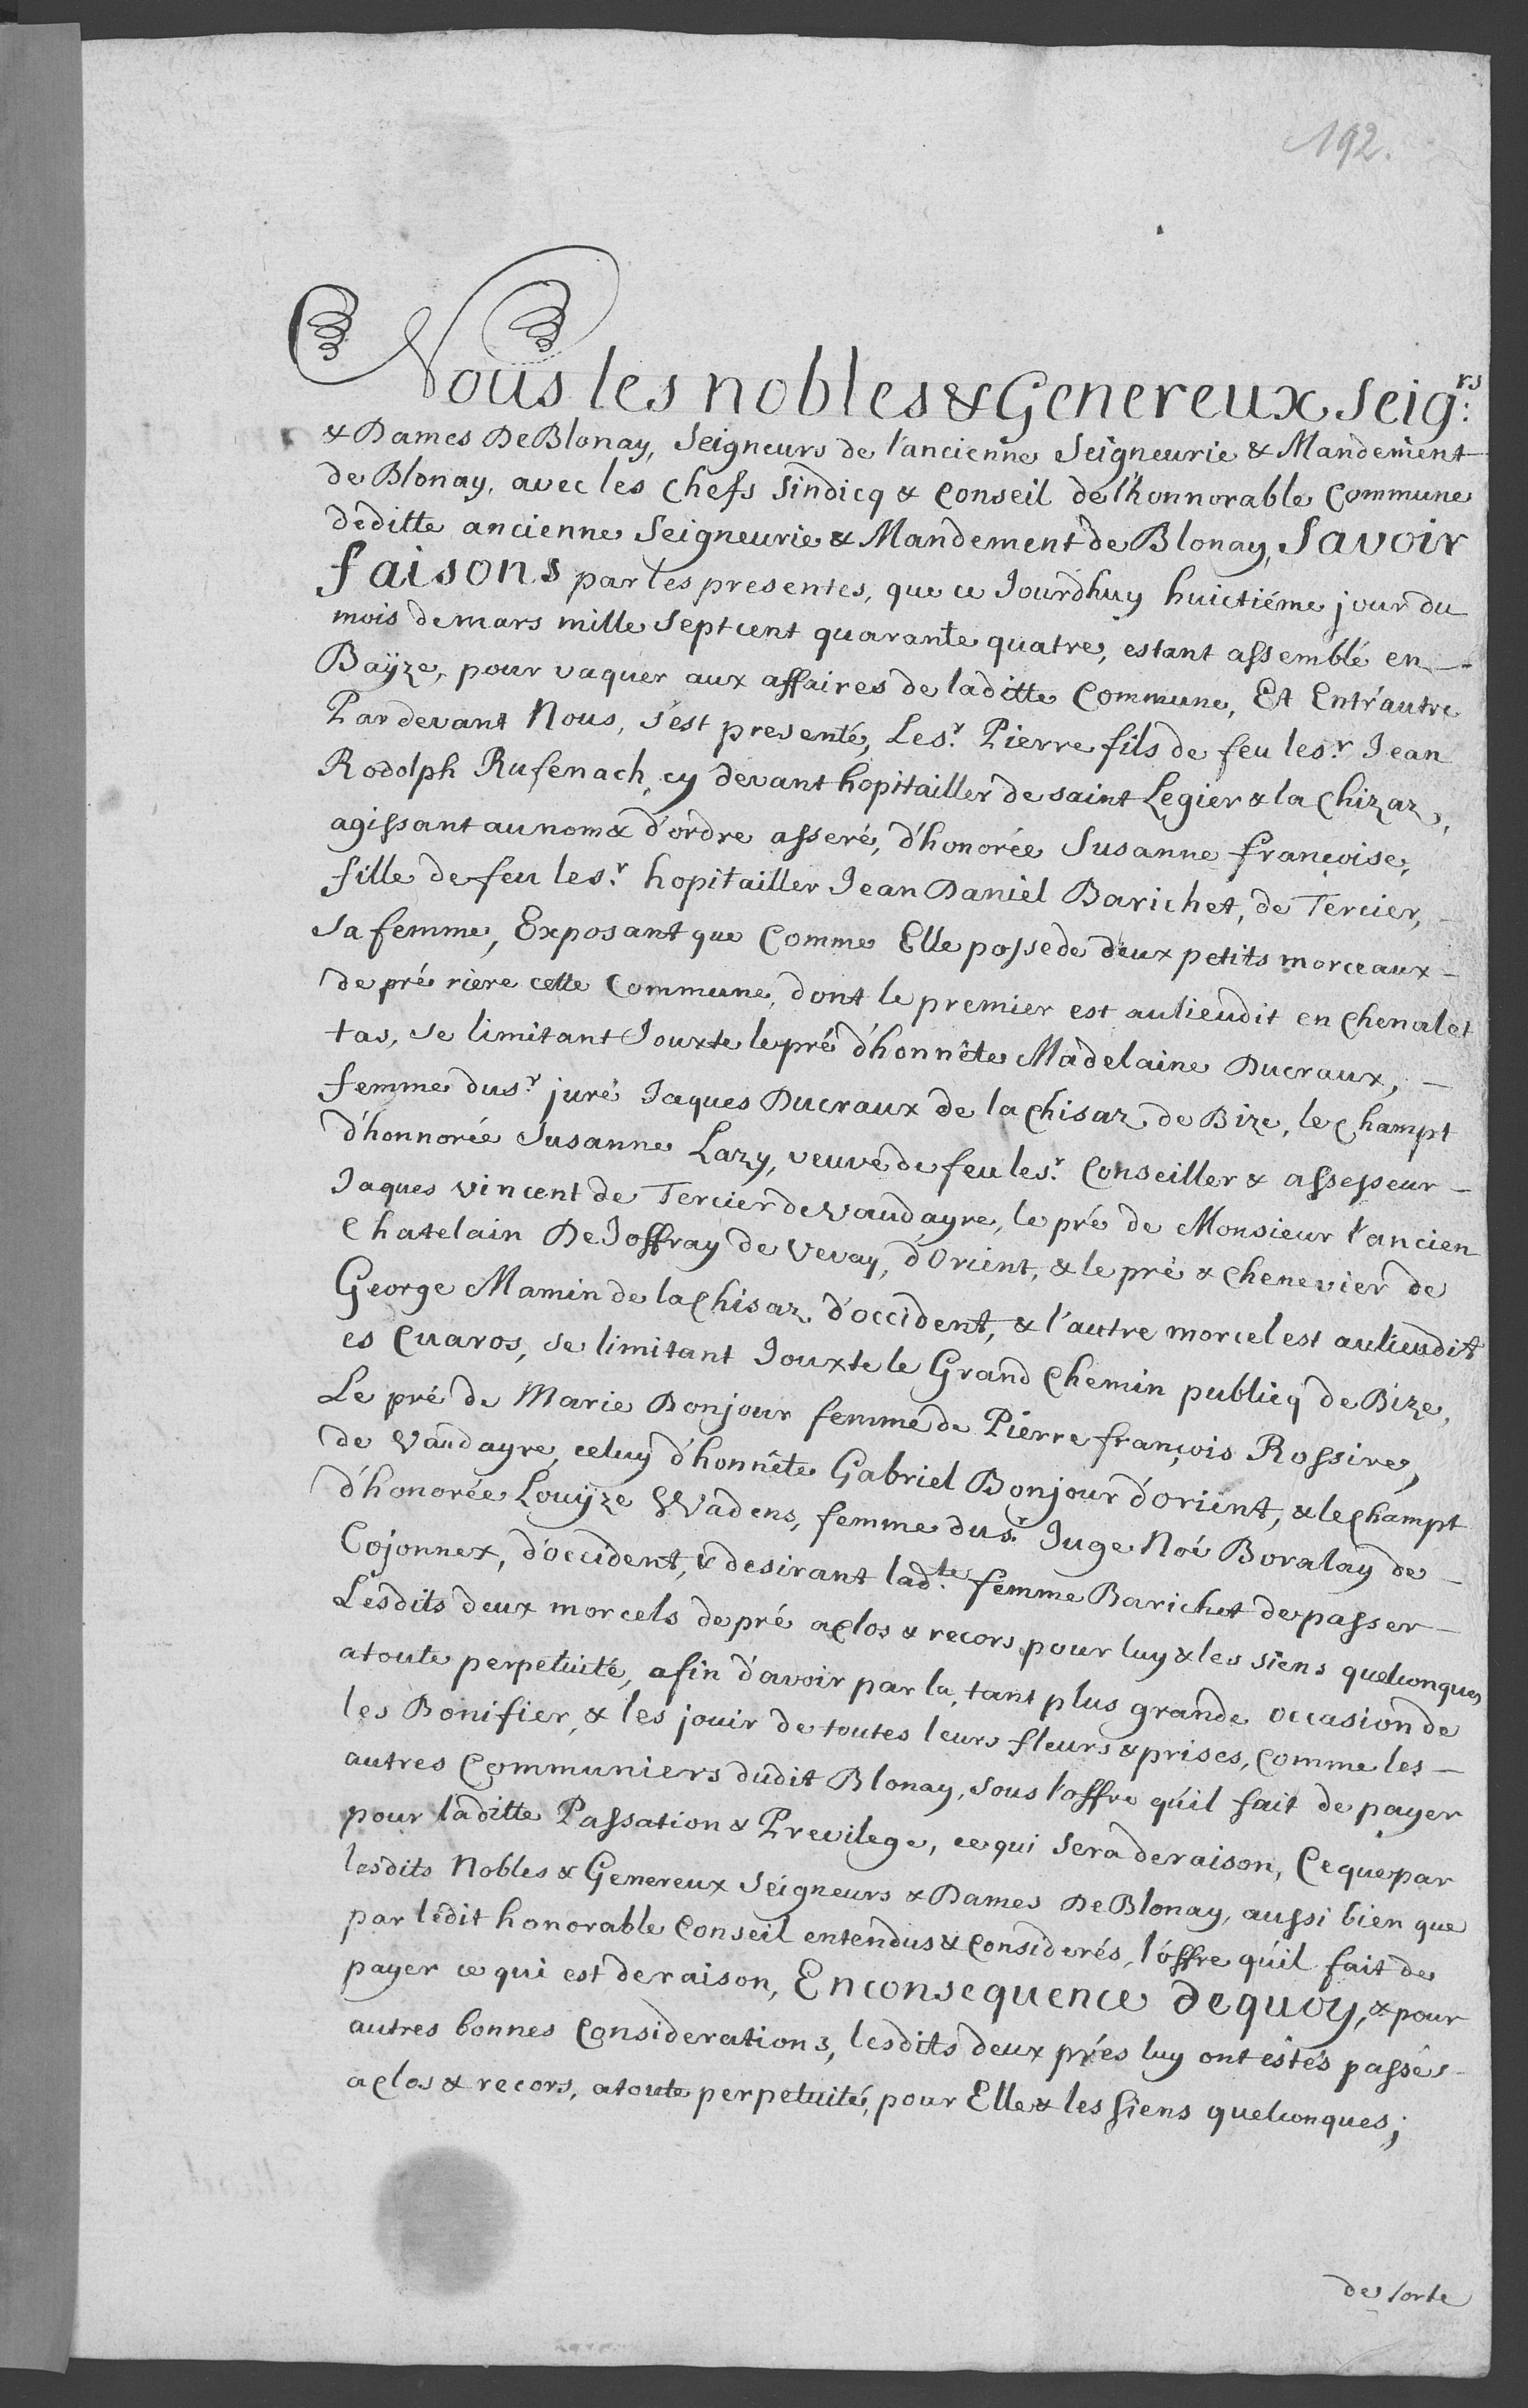 192.
Nous les nobles & Genereux Seig:rs
& Dames De Blonay, Seigneurs de l'ancienne Seigneurie & Mandement
de Blonay, avec les Chefs Sindicq & Conseil de l'honnorable Commune
deditte ancienne Seigneurie & Mandement de Blonay, Savoir
faisons par les presentes, que ce Jourdhuy huictiéme jour du
mois de mars mille Sept cent quarante quatre, estant assemblé en
Baÿze, pour vaquer aux affaires de laditte Commune, Et Entr'autre
Pardevant Nous, s'est presenté, Le sr. Pierre fils de feu le sr. Jean
Rodolph Rufenach, cy devant hopitailler de saint Legier & la Chizaz,
agissant au nom & d'ordre asseré, d'honorée Susanne françoise,
fille de feu le sr. hopitailler Jean Daniel Barichet, de Tercier,
sa femme, Exposant que Comme Elle possede deux petits morceaux
de pré riere cette Commune, dont le premier est au lieudit en Chenalet
tas, se limitant Jouxte le pré d'honnête Madelaine Ducraux,
femme du sr. juré Jaques Ducraux de la Chisaz de Bize, le Champt
d'honnorée Susanne Lazy, veuve de feu le sr. Conseiller & assesseur
Jaques Vincent de Tercier de vaudayre, le pré de Monsieur l'ancien
Chatelain De Joffray de Vevay, d'Orient, & le pré & Chenevier de
George Mamin de la Chisaz. d'occident, & l'autre morcel est au lieudit
es Cuaros, se limitant Jouxte le Grand Chemin publicq de Bize,
Le pré de Marie Bonjour femme de Pierre françois Rossire,
de Vaudayre, celuy d'honnête Gabriel Bonjour d'orient, & le Champt
d'honorée Louÿze Wadens, femme du sr. Juge Noé Boralay de
Cojonnex, d'occident, & desirant lad.te femme Barichet de passer
Lesdits deux morcels de pré a Clos & recors pour luy & les siens quelconques
a toute perpetuité, afin d'avoir par la, tant plus grande occasion de
les Bonifier, & les jouir de toutes leurs fleurs & prises, Comme les
autres Communiers dudit Blonay, sous l'offre qu'il fait de payer
pour laditte Passation & Previlege, ce qui sera de raison, Ce que par
lesdits Nobles & Genereux Seigneurs & Dames De Blonay, aussi bien que
par ledit honorable Conseil entendus & Considerés, l'offre qu'il fait de
payer ce qui est de raison, En consequence de quoy, & pour
autres bonnes Considerations, lesdits deux prés luy ont estés passés
a Clos & recors, a toute perpetuité, pour Elle & les Siens quelconques;
de sorte